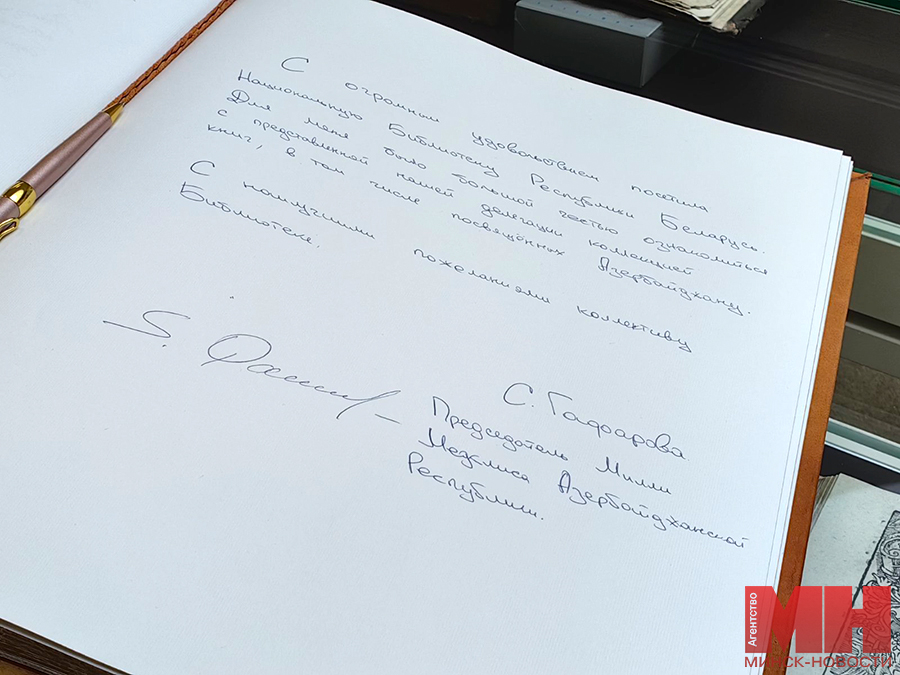 С огромным удовольствием посетила
Национальную Библиотеку Республики Беларусь.
Для меня было большой честью ознакомиться
с представленной нашей делегации коллекцией
книг, в том числе посвящённых Азербайджану.
С наилучшими пожеланиями коллективу
Библиотеки.
С. Гафарова
Председатель Милли
Меджлиса Азербайджанской
Республики.
Агентство
МН
МИНСК-НОВОСТИ